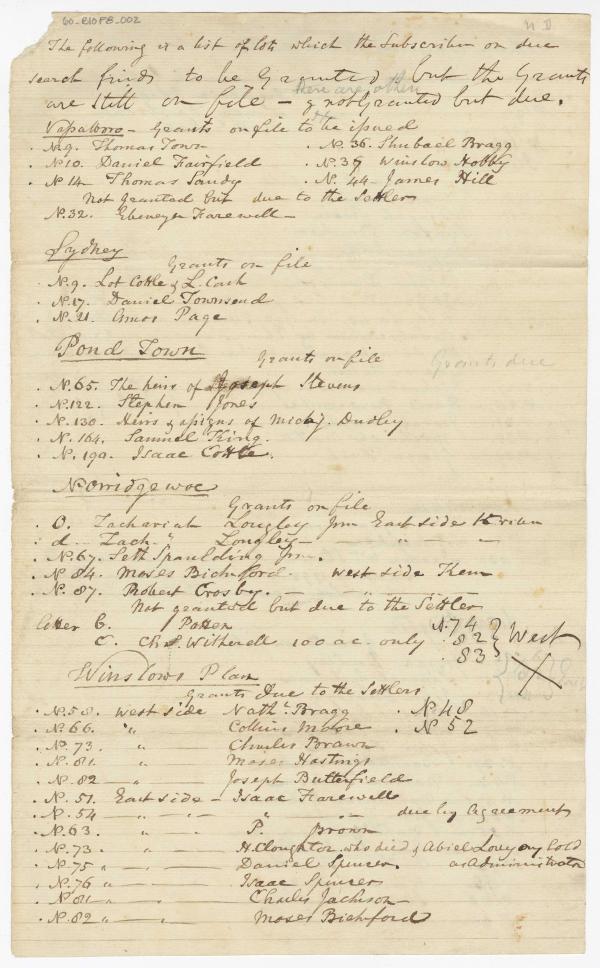 60-B10F8-002
N D
The following is a list of lots which the Subscriber on due
search finds to be Granted but the Grants
there are other
are still on file - & not Granted but due.
Vapalboro - Grants on file to be issued
. No 9. Thomas Town . N. 36. Shubael Bragg
. N 10. Daniel Fairfield . N. 37 Winslow Hobby
. N 14 - Thomas Sandy . N. 44 - James Hill
Not Granted but due to the Settlers
N. 32. Ebenezer Farewell -
Sydney
Grants on file
. N. 9. Lot Cottle & L. Cash
. N. 17. Daniel Townsend
. N. 21. Amos Page
Pond Town Grants on file Grants due
. N. 65. The heirs of Joseph Stevens
. N. 122. Stephen Jones
. N. 130. Heirs & assigns of Dudley
. N. 164. Samuel King.
. N. 190. Isaac Cottle.
Norridgewoc
Grants on file
. O. Zachariah Longley Jnr East side K river
. d - Zach. " Longley - - " - -
. N. 67. Seth Spaulding Jnr.
. N. 84. Moses Bickford. West side Kem
. N. 87. Robert Crosby. - - " -
Not granted but due to the Settler
C. Patten N. 74
C. Chs. Witherell 100 ac. only . 82 West
. 83
X
Winslows Plan
Grants Due to the Settlers
. N. 58. West side Nathl. Bragg . N. 48
. N. 66. " Collins Moore . N. 52
. N. 73. " - Charles Brawn
. N. 81. " - Moses Hastings
. N. 82 - " - Joseph Butterfield
. N. 51. East side - Isaac Farewell
. N. 54 - " - " - " " - due by Agreement
. N. 63. " " - P. Brown
. N. 73. " " - H. Cloughtor who died & Abiel Lovejoy Sold
. N. 75 " - " - Daniel Spencer. as Administrator
. N. 76 " - " - Isaac Spencer
. N. 81 " - " - Charles Jackson -
. N. 82 " - " - Moses Bickford